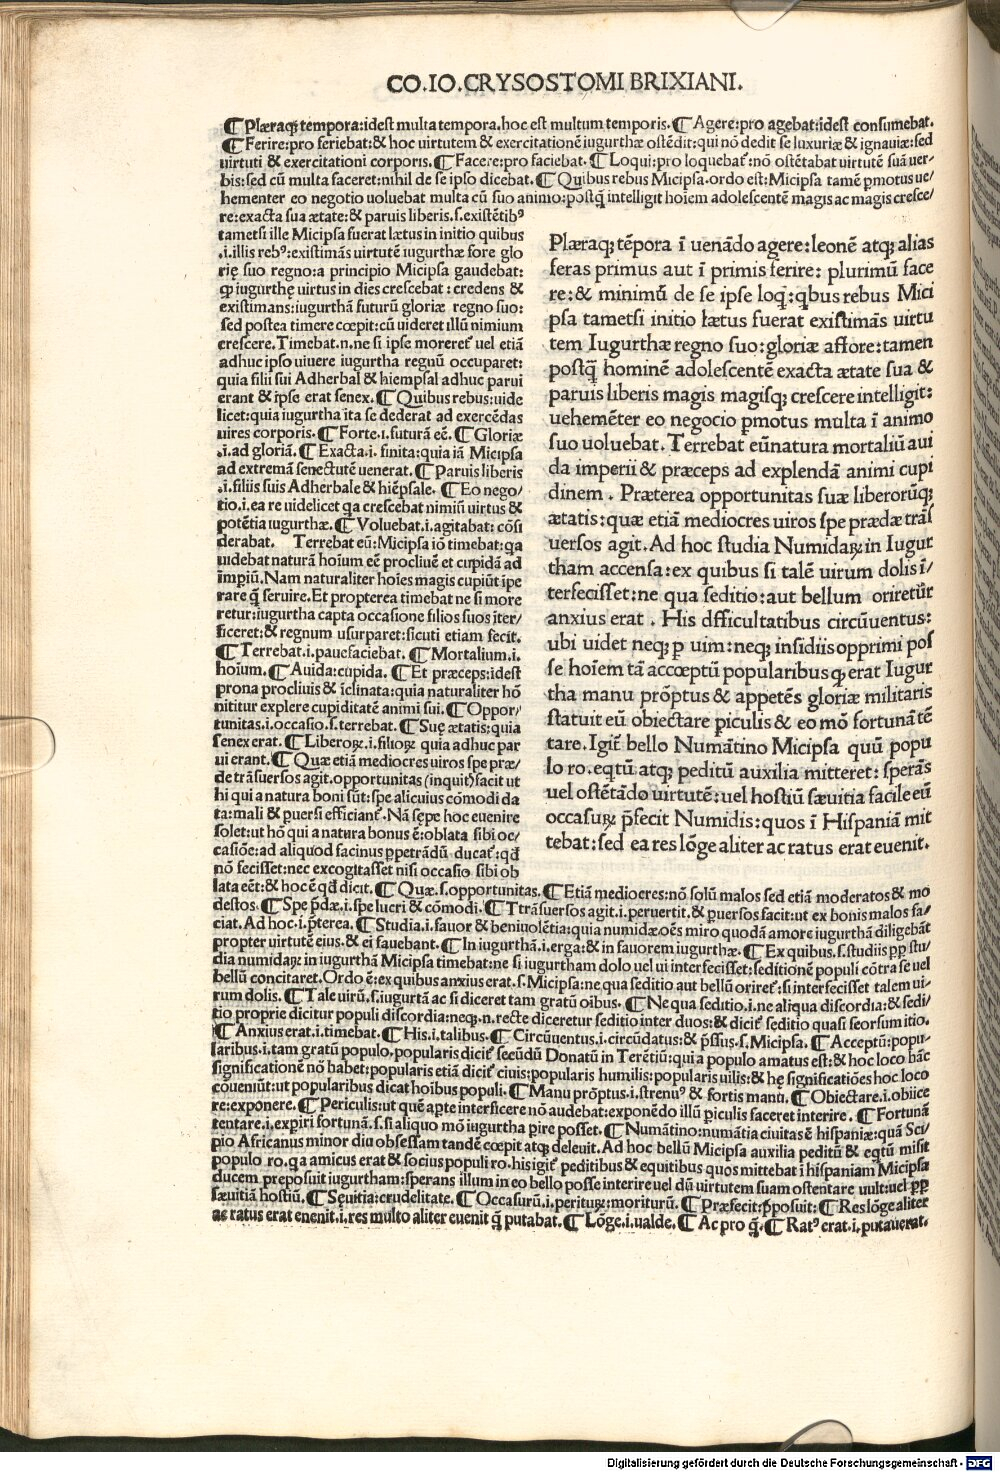 CO.IO.CRYSOSTOMI BRIXIANI.
¶ Plæraqꝫ tempora:idest multa tempora.hoc est multum temporis. ¶ Agere:pro agebat:idest consumebat.
¶ Ferire:pro feriebat:& hoc uirtutem & exercitationē iugurthæ ostēdit:qui nō dedit se luxuriæ & ignauiæ:sed
uirtuti & exercitationi corporis. ¶ Facere:pro faciebat. ¶ Loqui:pro loquebat᷑:nō ostētabat uirtutē suā uer-
bis:sed cū multa faceret:nihil de se ipso dicebat. ¶ Quibus rebus Micipsa.ordo est:Micipsa tamē ꝑmotus ue/
hementer eo negotio uoluebat multa cū suo animo:postꝗ̄ intelligit hoiem adolescentē magis ac magis cresce/
re:exacta sua ætate:& paruis liberis.s.existētibꝰ
tametsi ille Micipsa fuerat lætus in initio quibus
.i.illis rebꝰ:existimās uirtutē iugurthæ fore glo
rię suo regno:a principio Micipsa gaudebat:
ꝙ iugurthę uirtus in dies crescebat : credens &
existimans:iugurthā futurū gloriæ regno suo:
sed postea timere cœpit:cū uideret illū nimium
crescere.Timebat.n.ne si ipse moreret᷑ uel etiā
adhuc ipso uiuere iugurtha regnū occuparet:
quia filii sui Adherbal & hiempsal adhuc parui
erant & ipse erat senex. ¶ Quibus rebus:uide
licet:quia iugurtha ita se dederat ad exercēdas
uires corporis. ¶ Forte.i.futurā eē. ¶ Gloriæ
.i.ad gloriā. ¶ Exacta.i. finita:quia iā Micipsa
ad extremā senectutē uenerat. ¶ Paruis liberis
.i.filiis suis Adherbale & hiēpsale. ¶ Eo nego/
tio.i.ea re uidelicet qa crescebat nimiū uirtus &
potētia iugurthæ. ¶ Voluebat.i.agitabat: cōsi
derabat. Terrebat eū:Micipsa iō timebat:qa
uidebat naturā hoium eē procliuē et cupidā ad
īmpiū.Nam naturaliter hoies magis cupiūt īpe
rare ꝗ̄ seruire.Et propterea timebat ne si more
retur:iugurtha capta occasione filios suos īter/
ficeret:& regnum usurparet:sicuti etiam fecit.
¶ Terrebat.i.pauefaciebat. ¶ Mortalium.i.
hoium. ¶ Auida:cupida. ¶ Et præceps:idest
prona procliuis & īclinata:quia naturaliter hō
nititur explere cupiditatē animi sui. ¶ Oppor/
tunitas.i.occasio.s.terrebat. ¶ Suę ætatis:quia
senex erat. ¶ Liberoꝝ.i.filioꝝ quia adhuc par
ui erant. ¶ Quæ etiā mediocres uiros spe præ/
de trāsuersos agit.opportunitas (inquit)facit ut
hi qui a natura boni sūt:spe alicuius cōmodi da
ta:mali & ꝑuersi efficiant᷑. Nā sępe hoc euenire
solet:ut hō qui a natura bonus ē:oblata sibi oc/
casiōe:ad aliquod facinus ꝑpetrādū ducat᷑:qđ
nō fecisset:nec excogitasset nisi occasio sibi ob
lata eēt:& hoc ē qđ dicit. ¶ Quæ.s.opportunitas. ¶ Etiā mediocres:nō solū malos sed etiā moderatos & mo
destos. ¶ Spe p̄dæ.i.spe lucri & cōmodi. ¶ Ttrāsuersos agit.i.peruertit.& ꝑuersos facit:ut ex bonis malos fa/
ciat.Ad hoc.i.p̄terea. ¶ Studia.i.fauor & beniuolētia:quia numidæ oēs miro quodā amore iugurthā diligebāt
propter uirtutē eius.& ei fauebant. ¶ In iugurthā.i.erga:& in fauorem iugurthæ. ¶ Ex quibus.s.studiis ꝓp̄ stu/
dia numidaꝝ in iugurthā Micipsa timebat:ne si iugurtham dolo uel ui interfecisset:seditionē populi cōtra se uel
bellū concitaret.Ordo ē:ex quibus anxius erat.s.Micipsa:ne qua seditio aut bellū oriret᷑:si interfecisset talem ui-
rum dolis. ¶ Tale uirū.s.iugurtā ac si diceret tam gratū oibus. ¶ Ne qua seditio.i.ne aliqua discordia:& sedi/
tio proprie dicitur populi discordia:neqꝫ.n.recte diceretur seditio inter duos:& dicit᷑ seditio quasi seorsum itio.
¶ Anxius erat.i.timebat. ¶ His.i.talibus. ¶ Circūuentus.i.circūdatus:& p̄ssus.s.Micipsa. ¶ Acceptū:popu-
laribus.i.tam gratū populo.popularis dicit᷑ secūdū Donatū in Terētiū:quia populo amatus est:& hoc loco hāc
significationē nō habet:popularis etiā dicit᷑ ciuis:popularis humilis:popularis uilis:& hę significatiōes hoc loco
cōueniūt:ut popularibus dicat hoibus populi. ¶ Manu prōptus.i.strenuꝰ & fortis manu. ¶ Obiectare.i.obiice
re:exponere. ¶ Periculis:ut quē apte interficere nō audebat:exponēdo illū ꝑiculis faceret interire. ¶ Fortunā
tentare.i.experiri fortunā.s.si aliquo mō iugurtha ꝑire posset. ¶ Numātino:numātia ciuitas ē hispaniæ:quā Sci/
pio Africanus minor diu obsessam tandē cœpit atqꝫ deleuit.Ad hoc bellū Micipsa auxilia peditū & eqtū misit
populo ro.qa amicus erat & socius populi ro.his igit᷑ peditibus & equitibus quos mittebat ī hispaniam Micipsa
ducem preposuit iugurtham:sperans illum in eo bello posse interire uel dū uirtutem suam ostentare uult:uel ꝓp̄
sæuitiā hostiū. ¶ Sęuitia:crudelitate. ¶ Occasurū.i.perituꝝ:moriturū. ¶ Præfecit:p̄posuit: ¶ Res lōge aliter
ac ratus erat euenit.i.res multo aliter euenit ꝗ̄ putabat. ¶ Lōge.i.ualde. ¶ Ac pro ꝗ̄. ¶ Ratꝰ erat.i.putauerat.
Plæraqꝫ tēpora ī uenādo agere:leonē atqꝫ alias
feras primus aut ī primis ferire: plurimū face
re:& minimū de se ipse loq̄:qbus rebus Mici
psa tametsi initio lætus fuerat existimās uirtu
tem Iugurthæ regno suo:gloriæ affore:tamen
postꝗ̄ hominē adolescentē exacta ætate sua &
paruis liberis magis magisqꝫ crescere intelligit:
uehemēter eo negocio ꝑmotus multa ī animo
suo uoluebat.Terrebat eū natura mortaliū aui
da imperii & præceps ad explendā animi cupi
dinem . Præterea opportunitas suæ liberorūqꝫ
ætatis:quæ etiā mediocres uiros spe prædæ trās
uersos agit.Ad hoc studia Numidaꝝ in Iugur
tham accensa:ex quibus si talē uirum dolis ī/
terfecisset:ne qua seditio:aut bellum oriretūr
anxius erat . His dfficultatibus circūuentus:
ubi uidet neqꝫ ꝑ uim:neqꝫ insidiis opprimi pos
se hoiem tā accoeptū popularibus ꝙ erat Iugur
tha manu prōptus & appetēs gloriæ militaris
statuit eū obiectare ꝑiculis & eo mō fortunā tē
tare.Igit᷑ bello Numātino Micipsa quū popu
lo ro.eqtū atqꝫ peditū auxilia mitteret: sperās
uel ostētādo uirtutē:uel hostiū sæuitia facile eū
occasuꝝ p̄fecit Numidis:quos ī Hispaniā mit
tebat:sed ea res lōge aliter ac ratus erat euenit.
Digitalisierung gefördert durch die Deutsche Forschungsgemeinschaft - DFG